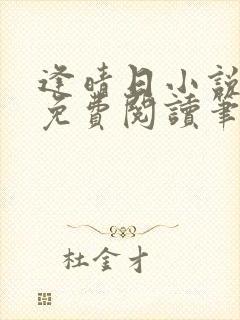 逢晴日小說
免費閱讀筆
杜金才